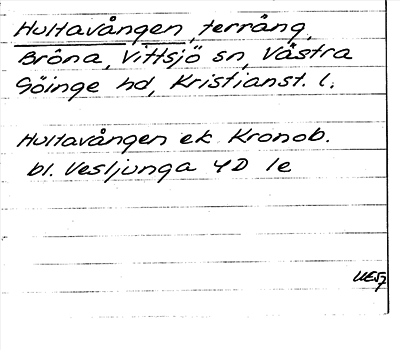 Hultavången, terräng,
Bröna, Vittsjö sn, Västra
Göinge hd, Kristianst. l.
Hultavången ek Kronob.
bl. Vesljunga 4D 1e